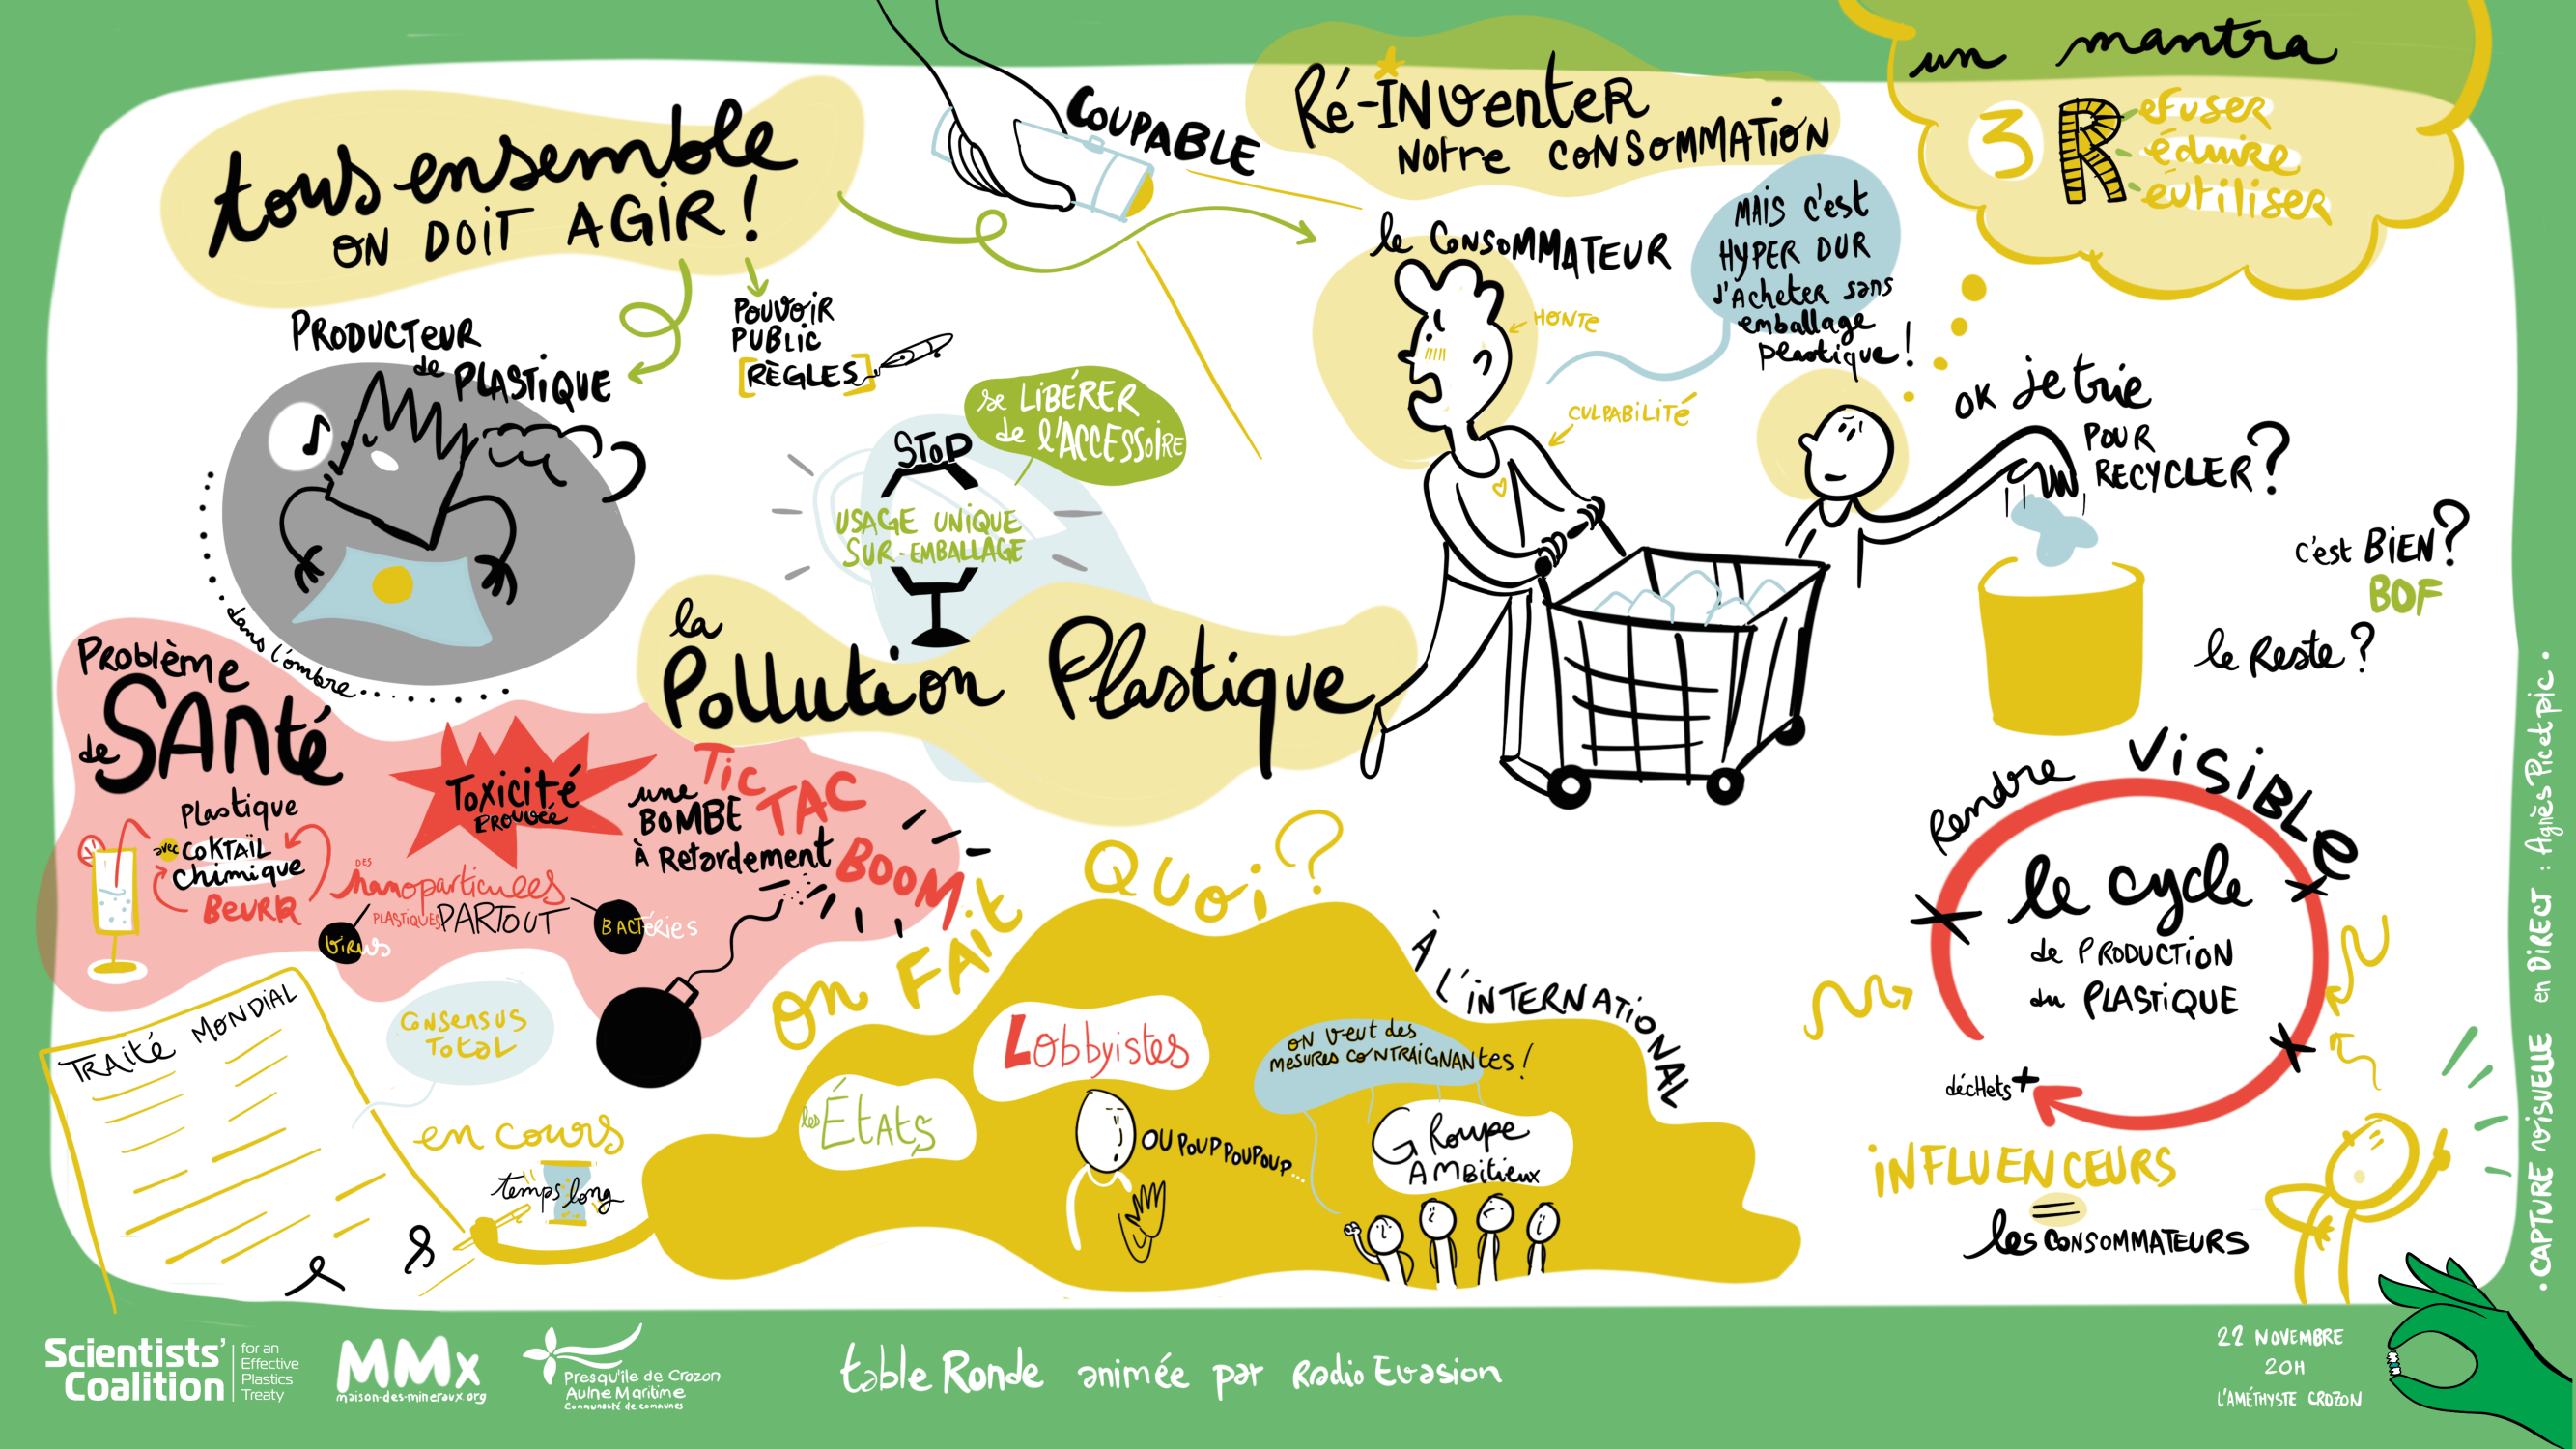 tous ensemble
ON DOIT AGIR !
COUPABLE
Ré-INVenteR
Notre CONSOMMATION
un mantra
3 R
efuseR
éduire
éutiliser
PRODUCTEUR
de PLASTIQUE
dans l'ombre
POUVOIR
PUBLIC
[RÈGLES]
le CONSOMMATEUR
HONTE
CULPABILITÉ
MAIS c'est
HYPER DUR
d'Acheter sans
emballage
plastique !
OK je trie
POUR
RECYCLER ?
c'est BIEN ?
BOF
le Reste ?
se LIBÉRER
de l'ACCESSOIRE
STOP
USAGE UNIQUE
SUR-EMBALLAGE
la
Pollution Plastique
Problème
de SANté
Plastique
avec COKTAIL
chimique
BEURK
Toxicité
PROUVÉE
DES
nanoparticules
PLASTIQUES PARTOUT
VIRUS
BACTÉRIES
une
BOMBE
à Retardement
Tic
TAC
BOOM
TRAITÉ MONDIAL
CONSENSUS
TOTAL
en cours
temps long
on FAIT QUOI ?
les ÉTATS
Lobbyistes
OUPOUPPOUPOUP...
À L'INTERNATIONAL
ON veut des
mesures CONTRAIGNANtes !
GRoupe
AMBitieux
Rendre VISIBLE
le cycle
de PRODUCTION
du PLASTIQUE
déchets +
INFLUENCEURS
=
les CONSOMMATEURS
• CAPTURE VISUELLE en DIRECT : Agnès Pic et pic •
Scientists'
Coalition
for an
Effective
Plastics
Treaty
MMx
maison-des-mineraux.org
Presqu'île de Crozon
Aulne Maritime
Communauté de communes
table Ronde animée par Radio Evasion
22 NOVEMBRE
20H
L'AMÉTHYSTE CROZON